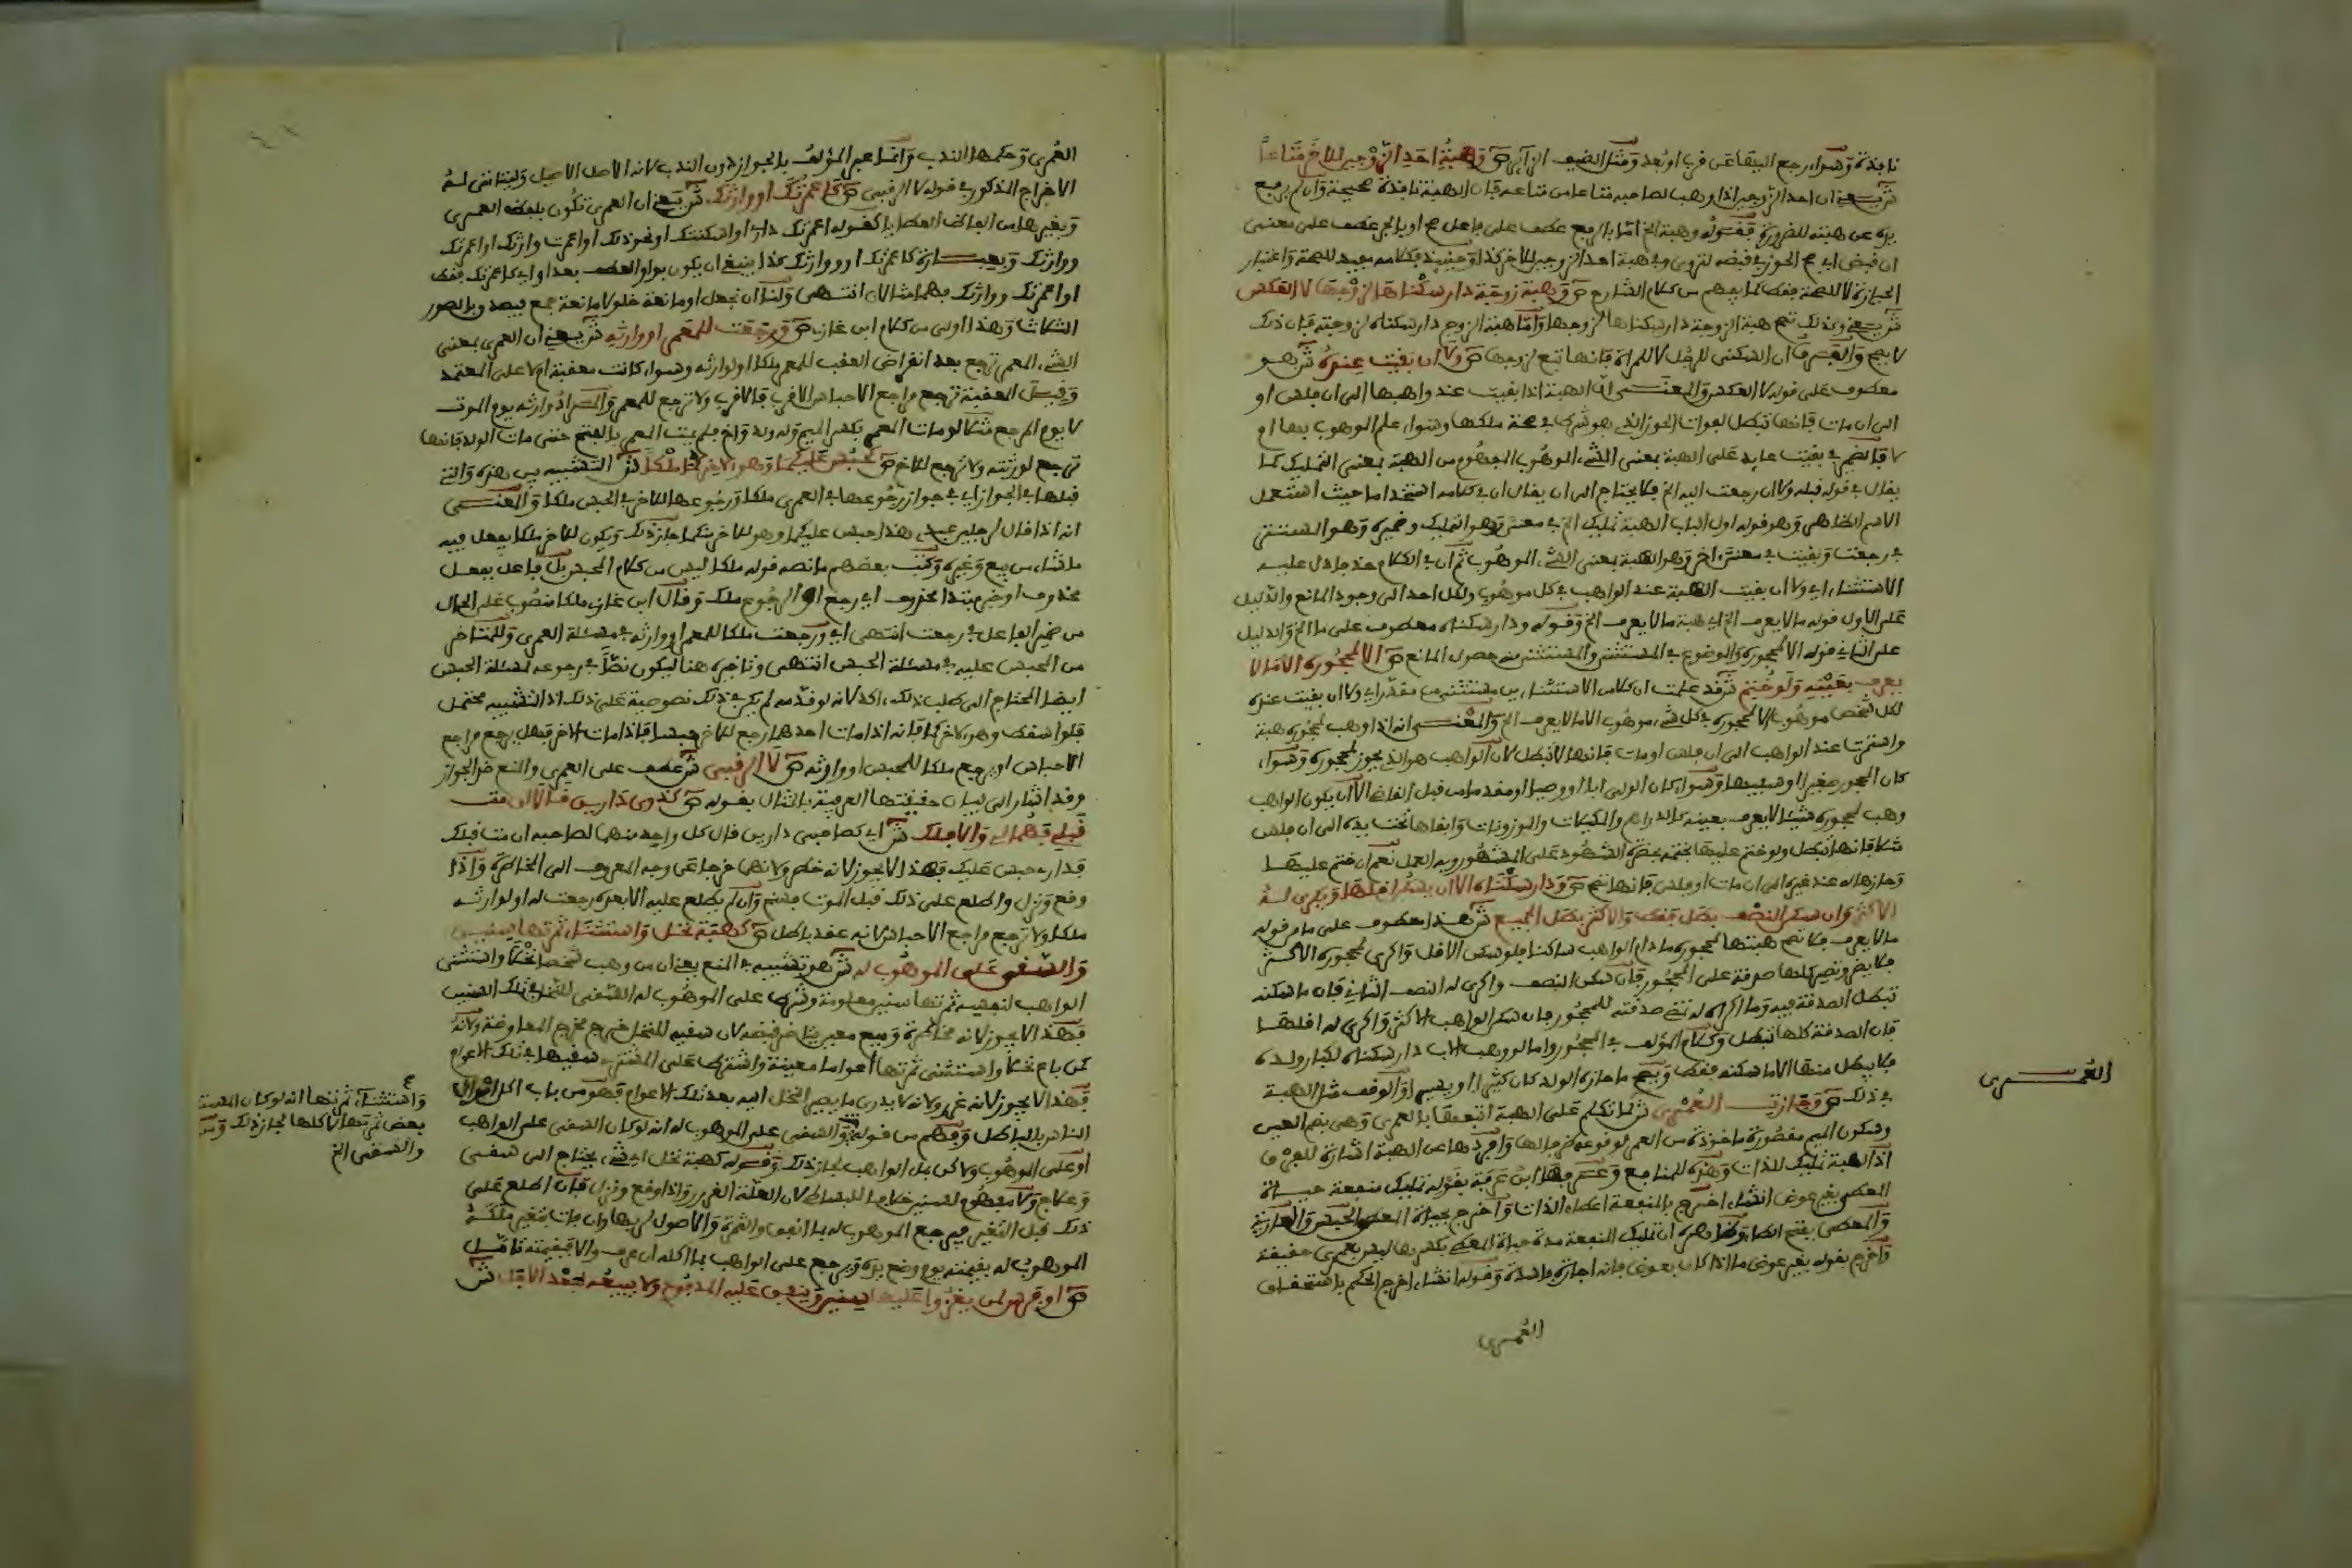 نافذة وسواء رجع البيقاعى قرب او بعد ومثل الضيف ان اتى ص وهبة احد الزوجين للاخر متاعا
ش يعنى ان احد الزوجين اذا وهب لصاحبه متاعا من متاعه فان الهبة نافذة صحيحة وان لم يرفع
يده عن هبته للضرورة فقوله وهبة الخ اما بالرفع عطف على فاعل صح او بالجر عطف على معنى
ان قبض اى صح الحوز فى قبضه لتروى وفى هبة احد الزوجين للاخر كذا وحينئذ فكلامه مفيد للصحة واعتبار
الحيازة لا للصحة فقط كما يفهم من كلام الشارح ص وهبة زوجة دار سكناها لزوجها لا العكس
ش يعنى وكذلك تصح هبة الزوجة دار سكناها لزوجها واما هبة الزوج دار سكناه لزوجته فان ذلك
لا يصح والفرق ان السكنى للرجل لا للمرأة فانها تبع لزوجها ص ولا ان بقيت عنده ش هو
معطوف على قوله لا العكس والمعنى ان الهبة اذا بقيت عند واهبها الى ان فلس او
الى ان مات فانها تبطل لفوات الحوز الذى هو شرط فى صحة ملكها وسواء علم الموهوب بها او
لا فالضمير فى بقيت عايد على الهبة بمعنى الشىء الموهوب المفهوم من الهبة بمعنى التمليك كما
يقال فى قوله قبله ولا ان رجعت اليه الخ فلا يحتاج الى ان يقال ان فى كلامه استخداما حيث استعمل
الاسم الظاهر وهو قوله اول الباب الهبة تمليك الخ فى معنى وهو التمليك وضميره وهو المستتر
فى رجعت وبقيت فى معنى اخر وهو الهبة بمعنى الشىء الموهوب ثم ان فى الكلام حذفا دل عليه
الاستثناء اى ولا ان بقيت الهبة عند الواهب فى كل موهوب ولكل احد الى وجود المانع والدليل
على الاول قوله ما لا يعرف الخ اى هبة ما لا يعرف الخ وقوله ودار سكناه معطوف على ما الخ والدليل
على الثانى قوله الا لمحجوره والموضوع فى المستثنى والمستثنى منه حصول المانع ص الا لمحجوره الا ما لا
يعرف بعينه ولو ختم ش قد علمت ان كلامه الاستثناء من مستثنى منه مقدر اى ولا ان بقيت عنده
لكل شخص موهوب الا لمحجوره فى كل شىء موهوب الا ما لا يعرف الخ والمعنى انه اذا وهب لمحجوره هبة
واستمرت عند الواهب الى ان فلس او مات فانها لا تبطل لان الواهب هو الذى يحوز لمحجوره وسواء
كان المحجور صغيرا او سفيها وسواء كان الولى ابا او وصيا او مقدما من قبل القاضى الا ان يكون الواهب
وهب لمحجوره شيئا لا يعرف بعينه كالدراهم والمكيلات والموزونات وابقاها تحت يده الى ان فلس
مثلا فانها تبطل ولو ختم عليها بختمه بحضرة الشهود على المشهور وبه العمل نعم ان ختم عليها
وحازها له عند غيره الى ان مات او فلس فانها تتم ص ودار سكناه الا ان يسكن اقلها ويكرى له
الاكثر وان سكن النصف بطل فقط والاكثر بطل الجميع ش هذا معطوف على ما من قوله
ما لا يعرف فلا تصح هبتها لمحجوره ما دام الواهب ساكنا فلو سكن الاقل واكرى لمحجوره الاكثر
فلا يضر وتصير كلها صدقة على المحجور فان سكن النصف واكرى له النصف الثانى فان ما سكنه
تبطل الصدقة فيه وما اكراه له تتم صدقته للمحجور فان سكن الواهب الاكثر واكرى له اقلها
فان الصدقة كلها تبطل وكلام المؤلف فى المحجور واما لو وهب الاب دار سكناه لكبار ولده
فلا يبطل منها الا ما سكنه فقط ويصح ما حازه الولد كان كثيرا او يسيرا والوقف مثل الهبة
فى ذلك ص وجازت العمرى ش لما تكلم على الهبة اتبعها بالعمرى وهى بضم العين
وسكون الميم مقصورة ماخوذة من العمر لوقوعه ظرفا لها وافردها عن الهبة اشارة للفرق
اذ الهبة تمليك للذات وهذه للمنافع وعرفها ابن عرفة بقوله تمليك منفعة حياة
المعطى بغير عوض انشاء اخرج بالمنفعة اعطاء الذات واخرج بحياة المعطى الحبس والعارية
والمعطى بفتح الطاء وظاهره ان تمليك المنفعة مدة حياة المعطى بكسرها ليس بعمرى حقيقة
واخرج بقوله بغير عوض ما اذا كان بعوض فانه اجارة فاسدة وقوله انشاء اخرج الحكم باستحقاق
العمرى
العمرى
العمرى وحكمها الندب وانما عبر المؤلف بالجواز دون الندب لانه الاصل الاصيل وليتاتى له
الاخراج المذكور فى قوله لا الرقبى ص كاعمرتك او وارثك ش يعنى ان العمرى تكون بلفظ العمرى
وبغيرها من الفاظ العطايا كقوله اعمرتك دارى او اسكنتك او نحو ذلك او اعمرت وارثك او اعمرتك
ووارثك وبعبارة كاعمرتك او ووارثك كذا ينبغى ان يكون بواو العطف بعد او اى كاعمرتك فقط
او اعمرتك ووارثك فهما مثالان انتهى ولنا ان نجعل او مانعة خلو لا مانعة جمع فيصدق بالصور
الثلاث وهذا اولى من كلام ابن غازى ص ورجعت للمعمر او وارثه ش يعنى ان العمرى بمعنى
الشىء المعمر ترجع بعد انقراض العقب للمعمر ملكا او لوارثه وسواء كانت معقبة ام لا على المعتمد
وقيل المعقبة ترجع مراجع الاحباس الاقرب فالاقرب ولا ترجع للمعمر والمراد وارثه يوم الموت
لا يوم المرجع مثلا لو مات المعمر بكسر الميم وله ولد واخ فلم يمت المعمر بالفتح حتى مات الولد فانها
ترجع لورثته ولا ترجع للاخ ص كحبس عليكما وهو لاخركما ملكا ش التشبيه بين هذه والتى
قبلها فى الجواز اى فى جواز رجوعها فى العمرى ملكا ورجوعها للاخر فى الحبس ملكا والمعنى
انه اذا قال لرجلين عبدى هذا حبس عليكما وهو للاخر منكما جاز ذلك ويكون للاخر ملكا يفعل فيه
ما شاء من بيع وغيره وكتب بعضهم ما نصه قوله ملكا ليس من كلام المحبس بل فاعل بفعل
محذوف او خبر مبتدا محذوف اى رجع او الرجوع ملك وقال ابن غازى ملكا منصوب على الحال
من ضمير الفاعل فى رجعت انتهى اى ورجعت ملكا للمعمر او وارثه فى مسئلة العمرى وللمتاخر
من المحبس عليه فى مسئلة الحبس انتهى وتاخيره هنا ليكون نصا فى رجوعه لمسئلة الحبس
ايضا المحتاج الى طلب ذلك اكد لانه لو قدمه لم يكن فى ذلك نصوصية على ذلك اذ التشبيه محتمل
فلو اسقط وهو لاخركما فانه اذا مات احدهما رجع للاخر حبسا فاذا مات الاخر فهل يرجع مراجع
الاحباس او يرجع ملكا للمحبس او وارثه ص لا الرقبى ش عطف على العمرى والمنع ضد الجواز
وقد اشار الى بيان حقيقتها العرفية بالمثال بقوله ص كذوى دارين قالا ان مت
قبلى فهما لى والا فلك ش اى كصاحبى دارين قال كل واحد منهما لصاحبه ان مت قبلك
فدارى حبس عليك فهذا لا يجوز لانه خطر ولانهما خرجا عن وجه المعروف الى المخاطرة واذا
وقع ونزل واطلع على ذلك قبل الموت فسخ وان لم يطلع عليه الا بعده رجعت له او لوارثه
ملكا ولا ترجع مراجع الاحباس لانه عقد باطل ص كهبة نخل واستثناء ثمرتها سنين
والسقى على الموهوب له ش هو تشبيه فى المنع يعنى ان من وهب شخصا نخلا واستثنى
الواهب لنفسه ثمرتها سنين معلومة وشرط على الموهوب له السقى للنخل فى تلك السنين
فهذا لا يجوز لانه مخاطرة وبيع معين يتاخر قبضه لان سقيه للنخل خرج مخرج المعاوضة ولانه
كمن باع نخلا واستثنى ثمرتها اعواما معينة واشترط على المشترى سقيها فى تلك الاعوام
فهذا لا يجوز لانه غرر ولانه لا يدرى ما يصير النخل اليه بعد تلك الاعوام فهو من باب اكل اموال
الناس بالباطل وفهم من قوله والسقى على الموهوب له انه لو كان السقى على الواهب
او على الموهوب ولاكن بمال الواهب لجاز ذلك وقوله كهبة نخل اى شىء يحتاج الى سقى
وعلاج ولا مفهوم لسنين خلافا للبساطى لان العلة الغرر واذا وقع ونزل فان اطلع على
ذلك قبل التغير فيرجع الموهوب له بما انفق والثمرة والاصول لربها وان فات بتغير ملكه
الموهوب له بقيمته يوم وضع يده ويرجع على الواهب بما اكله ان عرف والا فبقيمته تامل
ص او فرس لمن يغزو عليها سنين وينفق عليه المدفوع ولا يبيعه لبعد الاجل ش
واستثناء ثمرتها انه لو كان المستثنى
بعض ثمرتها لا كلها لجاز ذلك ومن
والسقى الخ